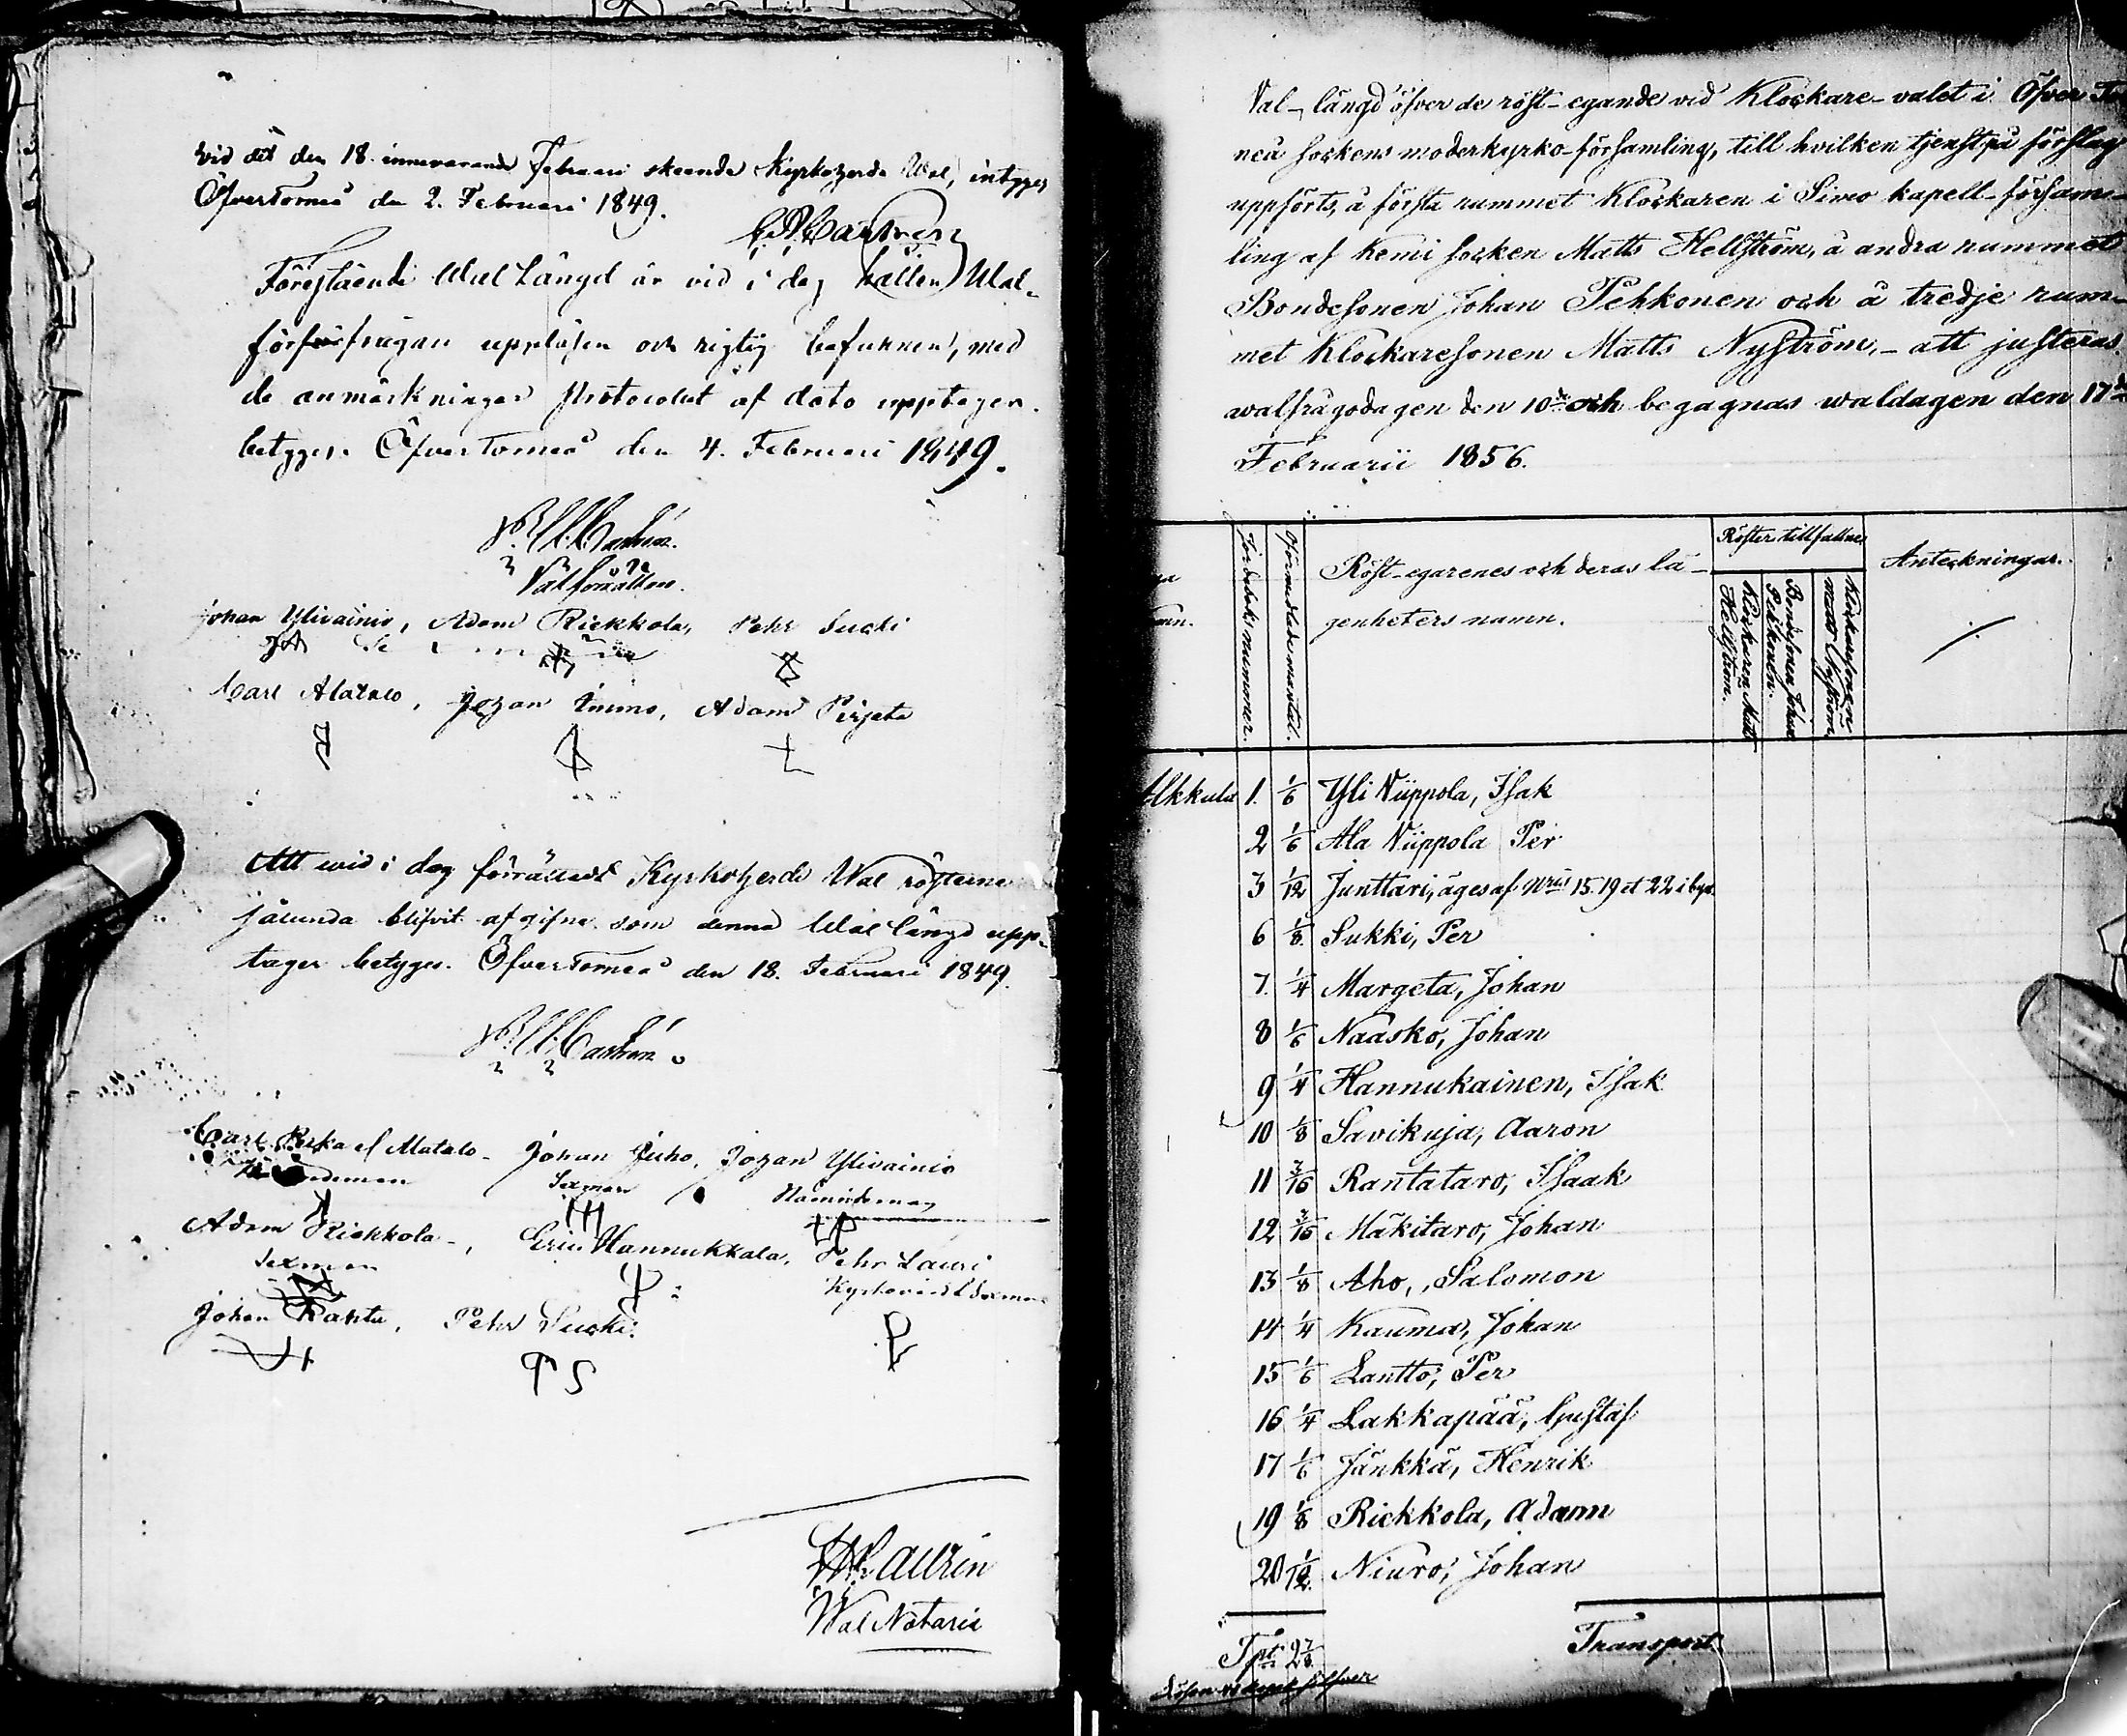 vid det den 18. innevarande Februari skeende Kyrkoherde Wal, intygar
ÖfverTorneå den 2. Februari 1849.
Förestående Wal Längd är vid i dag hållen Wal-
förfrågan uppläsen och rigtig befunnen, med
de anmärkningar Protocollet af dato upptager.
betygas. ÖfverTorneå den 4. Februari 1849.
Valförrättare.
Johan Ylivainio, Adam Rickkola, Pehr Sucki
Carl Alatalo, Johan Juuso, Adam Pirjeta
Att wid i dag förrättadt Kyrkoherde Wal rösterne
sålunda blifvit afgifne som denna Wal längd upp-
tager betygas. ÖfverTorneå den 18. Februari 1849.
Carl Matalo Johan Juho, Johan Ylivainio
Sexman Nämndeman
Adam Rickkola, Eric Hannukkala, Pehr Lauri
Sexman
Johan Ranta, Pehr Sucki.
PS
Laurin
Wal Notarie
Val-längd öfver de röst-egande vid Klockare-valet i Öfver Tor
neå sockens moderkyrko-församling, till hvilken tjenst på förslag
uppförts, å första rummet Klockaren i Simo kapell-försam-
ling af Kemi socken Matts Hellström, å andra rummet
Bondesonen Johan Pehkonen och å tredje rum-
met Klockaresonen Matts Nyström, - att justeras
walfrågodagen den 10de och begagnas waldagen den 17de
Februarii 1856.
Jordeboks nummer.
Oförmedlade mantal.
Röst-egarenes och deras lä-
genheters namn.
Röster tillfallne
Klockaren Matts Hellström.
Bondesonen Johan Pehkonen.
Klockaresonen Matts Nyström
Anteckningar.
Alkkula 1. 1/6 Yli Niippola, Isak
2 1/6 Ala Niippola Per
3 1/12 Junttari, äges af Nris 15. 19 et 22 i byn.
6 1/8 Sukki, Per
7. 1/4 Margeta, Johan
8 1/6 Naasko, Johan
9 1/4 Hannukainen, Isak
10 1/8 Savikuja, Aaron
11 3/16 Rantataro, Isaak
12 3/16 Mäkitaro, Johan
13 1/8 Aho, Salomon
14 1/4 Kauma, Johan
15 1/6 Lantto, Per
16 1/4 Lakkapää, Gustaf
17 1/6 Jänkkä, Henrik
19 1/8 Rickkola, Adam
20 1/12 Niuro, Johan
Tpt 2 7/8 Transport